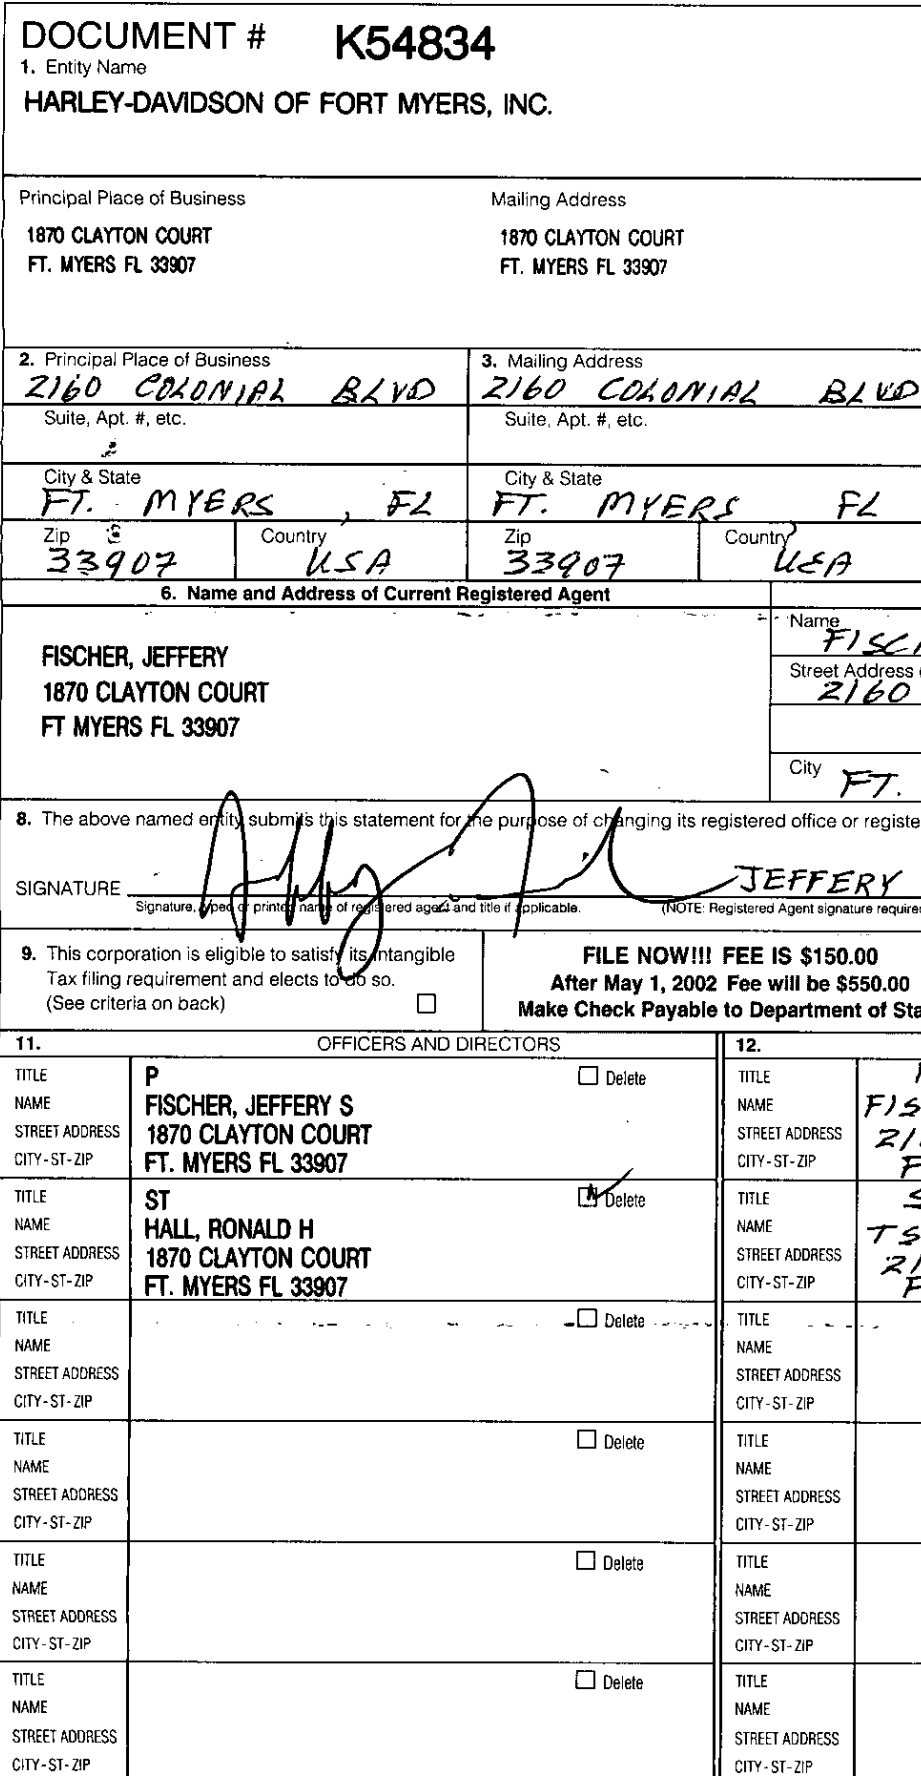 DOCUMENT # K54834
1. Entity Name
HARLEY-DAVIDSON OF FORT MYERS, INC.
Principal Place of Business
1870 CLAYTON COURT
FT. MYERS FL 33907
Mailing Address
1870 CLAYTON COURT
FT. MYERS FL 33907
2. Principal Place of Business
2160 COLONIAL BLVD
Suite, Apt. #, etc.
City & State
FT. MYERS, FL
Zip
33907
Country
USA
3. Mailing Address
2160 COLONIAL BLVD
Suite, Apt. #, etc.
City & State
FT. MYERS, FL
Zip
33907
Country
USA
6. Name and Address of Current Registered Agent
FISCHER, JEFFERY
1870 CLAYTON COURT
FT MYERS FL 33907
Name
FISC
Street Address
2160
City FT.
8. The above named entity submits this statement for the purpose of changing its registered office or registe
SIGNATURE JEFFERY
Signature, typed or printed name of registered agent and title if applicable. (NOTE: Registered Agent signature require
9. This corporation is eligible to satisfy its Intangible
Tax filing requirement and elects to do so.
(See criteria on back)
FILE NOW!!! FEE IS $150.00
After May 1, 2002 Fee will be $550.00
Make Check Payable to Department of Sta
11. OFFICERS AND DIRECTORS
TITLE P Delete
NAME FISCHER, JEFFERY S
STREET ADDRESS 1870 CLAYTON COURT
CITY-ST-ZIP FT. MYERS FL 33907
TITLE ST Delete
NAME HALL, RONALD H
STREET ADDRESS 1870 CLAYTON COURT
CITY-ST-ZIP FT. MYERS FL 33907
TITLE Delete
NAME
STREET ADDRESS
CITY-ST-ZIP
TITLE Delete
NAME
STREET ADDRESS
CITY-ST-ZIP
TITLE Delete
NAME
STREET ADDRESS
CITY-ST-ZIP
TITLE Delete
NAME
STREET ADDRESS
CITY-ST-ZIP
12.
TITLE
NAME FIS
STREET ADDRESS 21
CITY-ST-ZIP F
TITLE S
NAME TS
STREET ADDRESS 21
CITY-ST-ZIP F
TITLE
NAME
STREET ADDRESS
CITY-ST-ZIP
TITLE
NAME
STREET ADDRESS
CITY-ST-ZIP
TITLE
NAME
STREET ADDRESS
CITY-ST-ZIP
TITLE
NAME
STREET ADDRESS
CITY-ST-ZIP